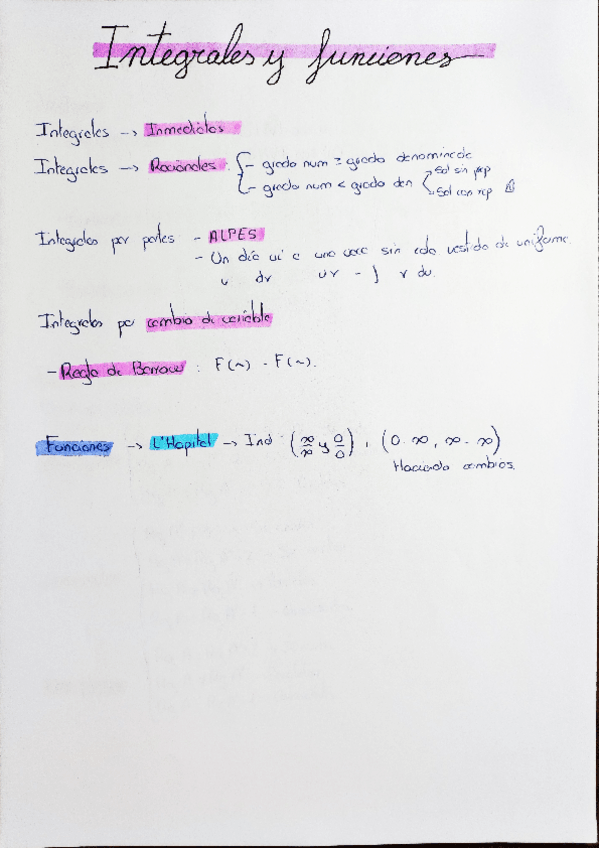 Integrales y funciones
Integrales → Inmediatas
Integrales → Racionales { - grado num ≥ grado denominador
- grado num < grado den { Sol sin rep
Sol con rep
Integrales por partes - ALPES
- Un día vi a una vaca sin cola vestida de uniforme.
u dv uv - ∫ v du.
Integrales por cambio de variable
- Regla de Barrow : F(~) - F(~).
Funciones → L'Hopital → Ind (∞/∞ y 0/0) , (0·∞, ∞-∞)
Haciendo cambios.